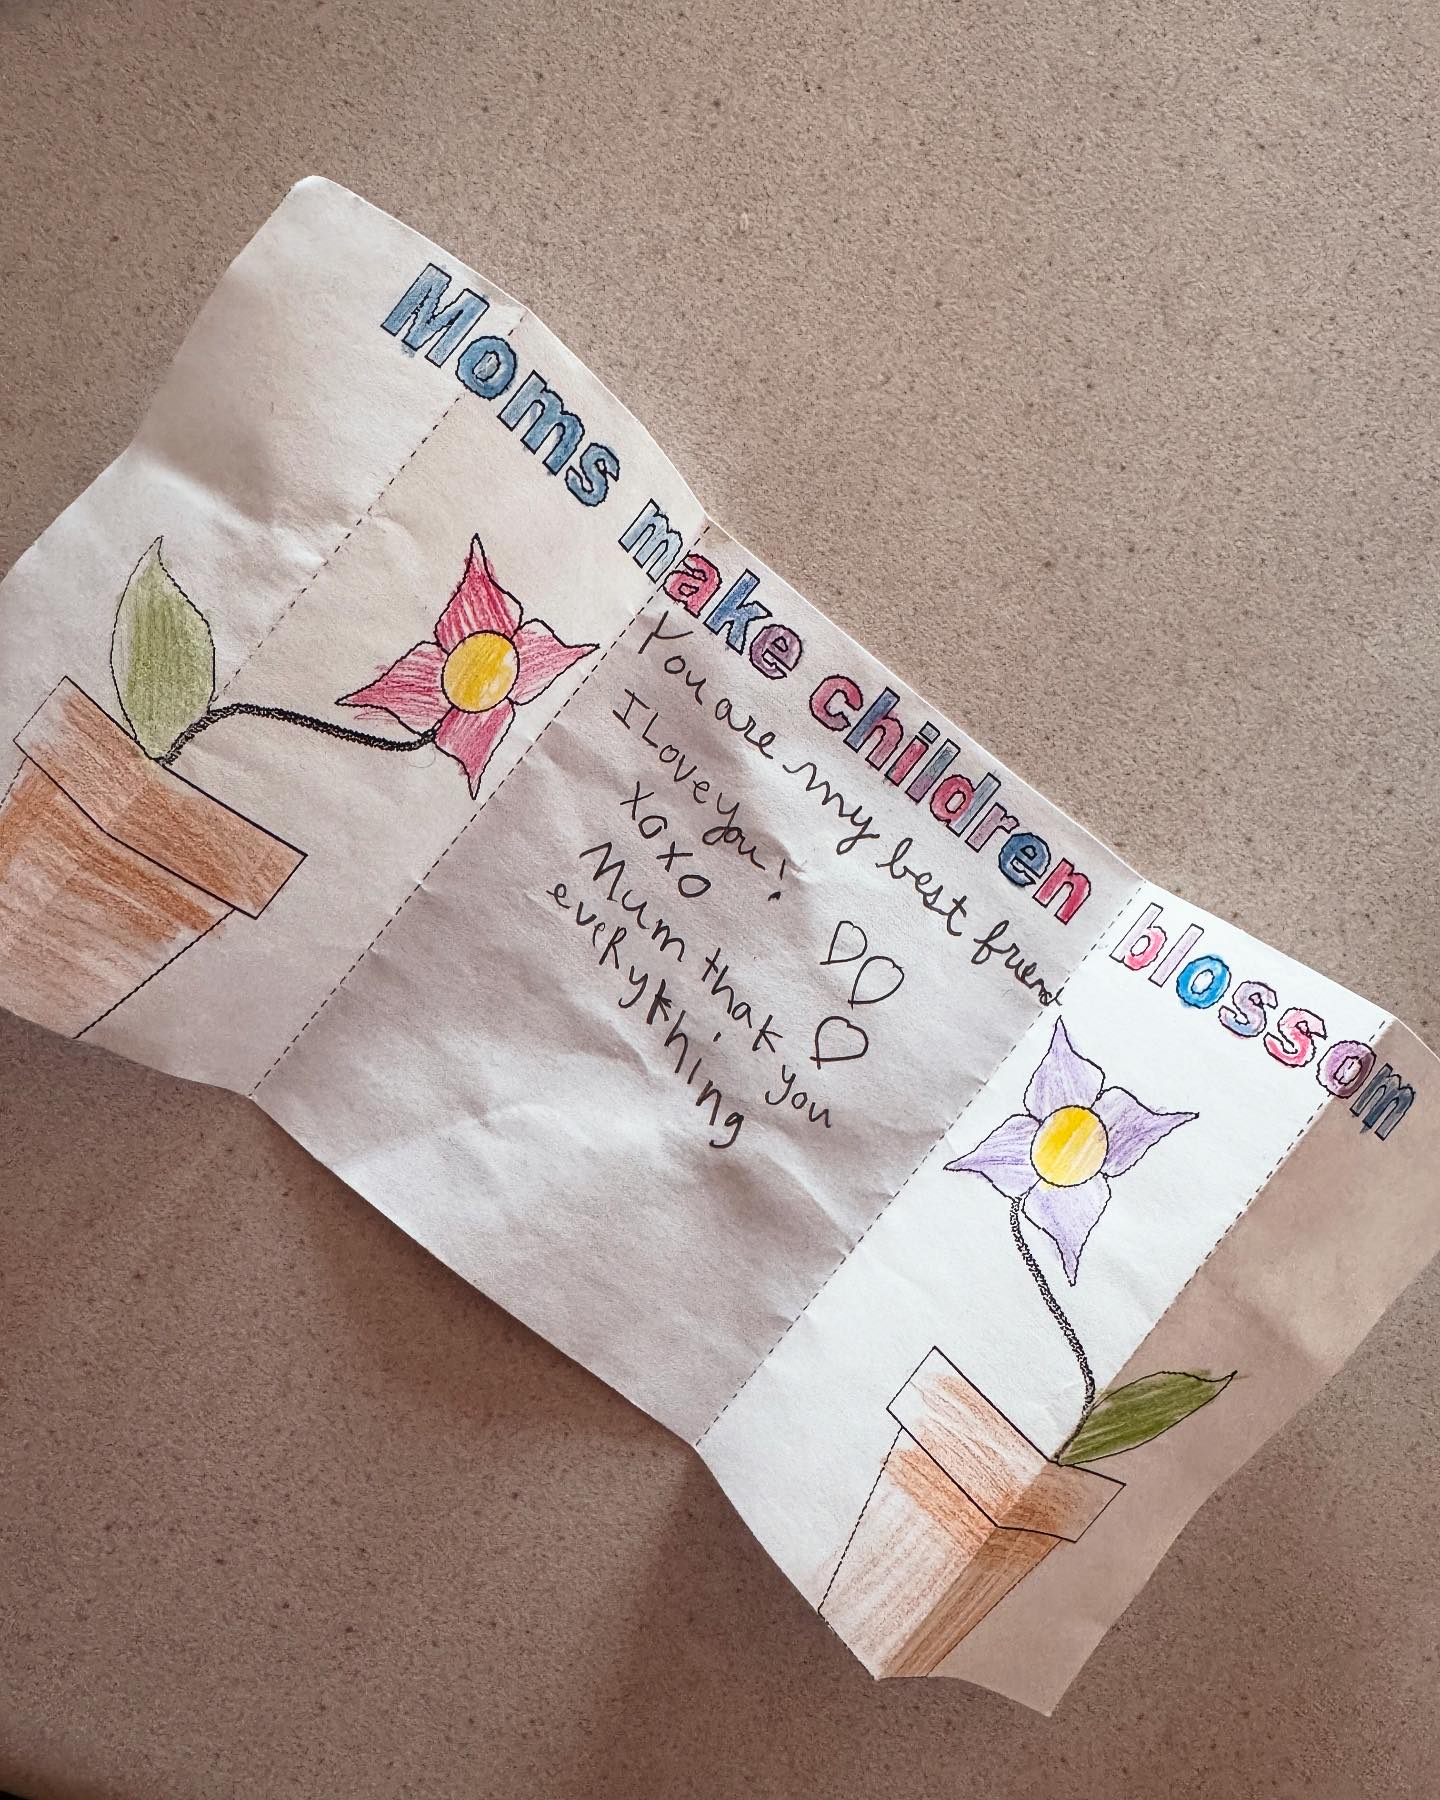 Moms make children blossom
You are my best friend
I Love you!
xoxo
Mum thak you
everykhing